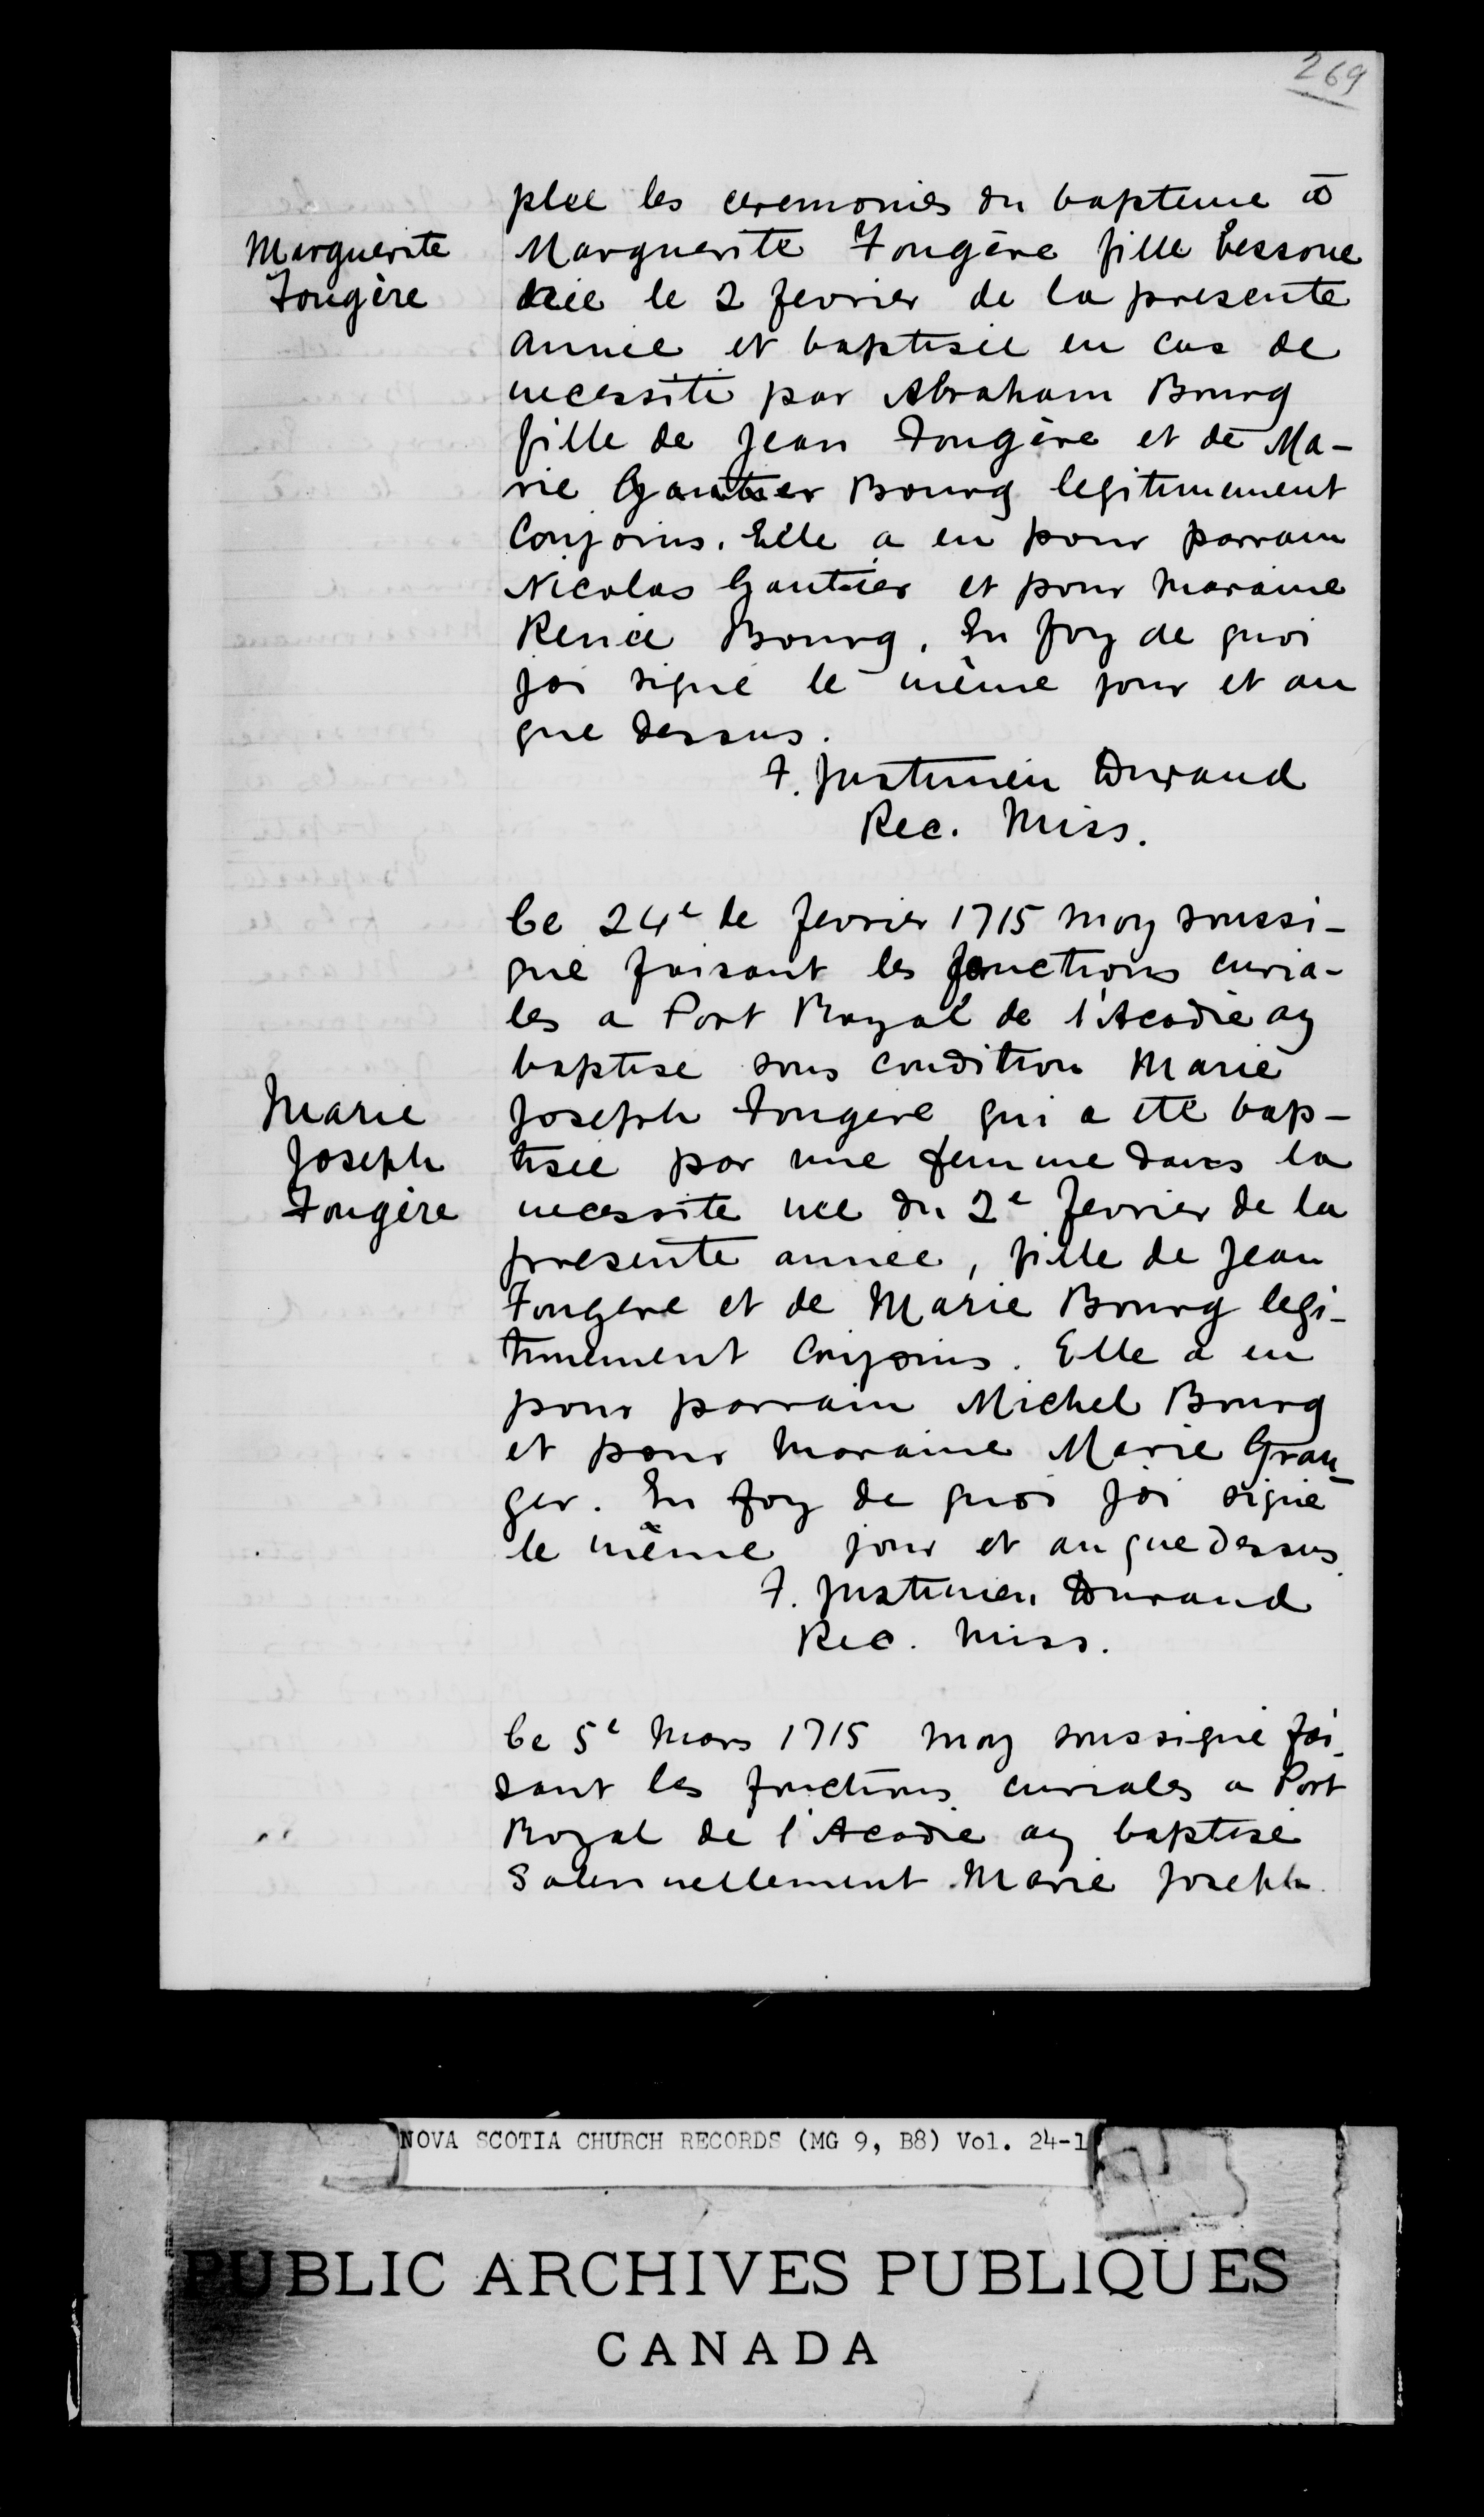 269
plee les ceremonies du bapteme a
Marguerite Fougère
Marguerite Fougère fille bessone
née le 2 fevrier de la presente
année et baptisée en cas de
necessité par Abraham Bourg
fille de Jean Fougère et de Ma-
rie Gautier Bourg legitimement
Conjoins. Elle a eu pour parrain
Nicolas Gautier et pour maraine
Renée Bourg. En foy de quoi
jai signé le même jour et an
que dessus.
F. Justinien Durand
Rec. Miss.
Ce 24e de fevrier 1715 moy soussi-
gné faisant les fonctions curia-
les a Port Royal de l'Acadie ay
baptisé sous condition Marie
Marie Joseph Fougère
Joseph Fougere qui a eté bap-
tisée par une femme dans la
necessite nee du 2e fevrier de la
presente année, fille de Jean
Fougere et de Marie Bourg legi-
timement Conjoins. Elle a eu
pour parrain Michel Bourg
et pour maraine Marie Gran-
ger. En foy de quoi jai signé
le même jour et an que dessus.
F. Justinien Durand
Rec. Miss.
Ce 5e Mars 1715 moy soussigné fai-
sant les fonctions curiales a Port
Royal de l'Acadie ay baptisé
Solennellement Marie Joseph
NOVA SCOTIA CHURCH RECORDS (MG 9, B8) Vol. 24-1
PUBLIC ARCHIVES PUBLIQUES
CANADA